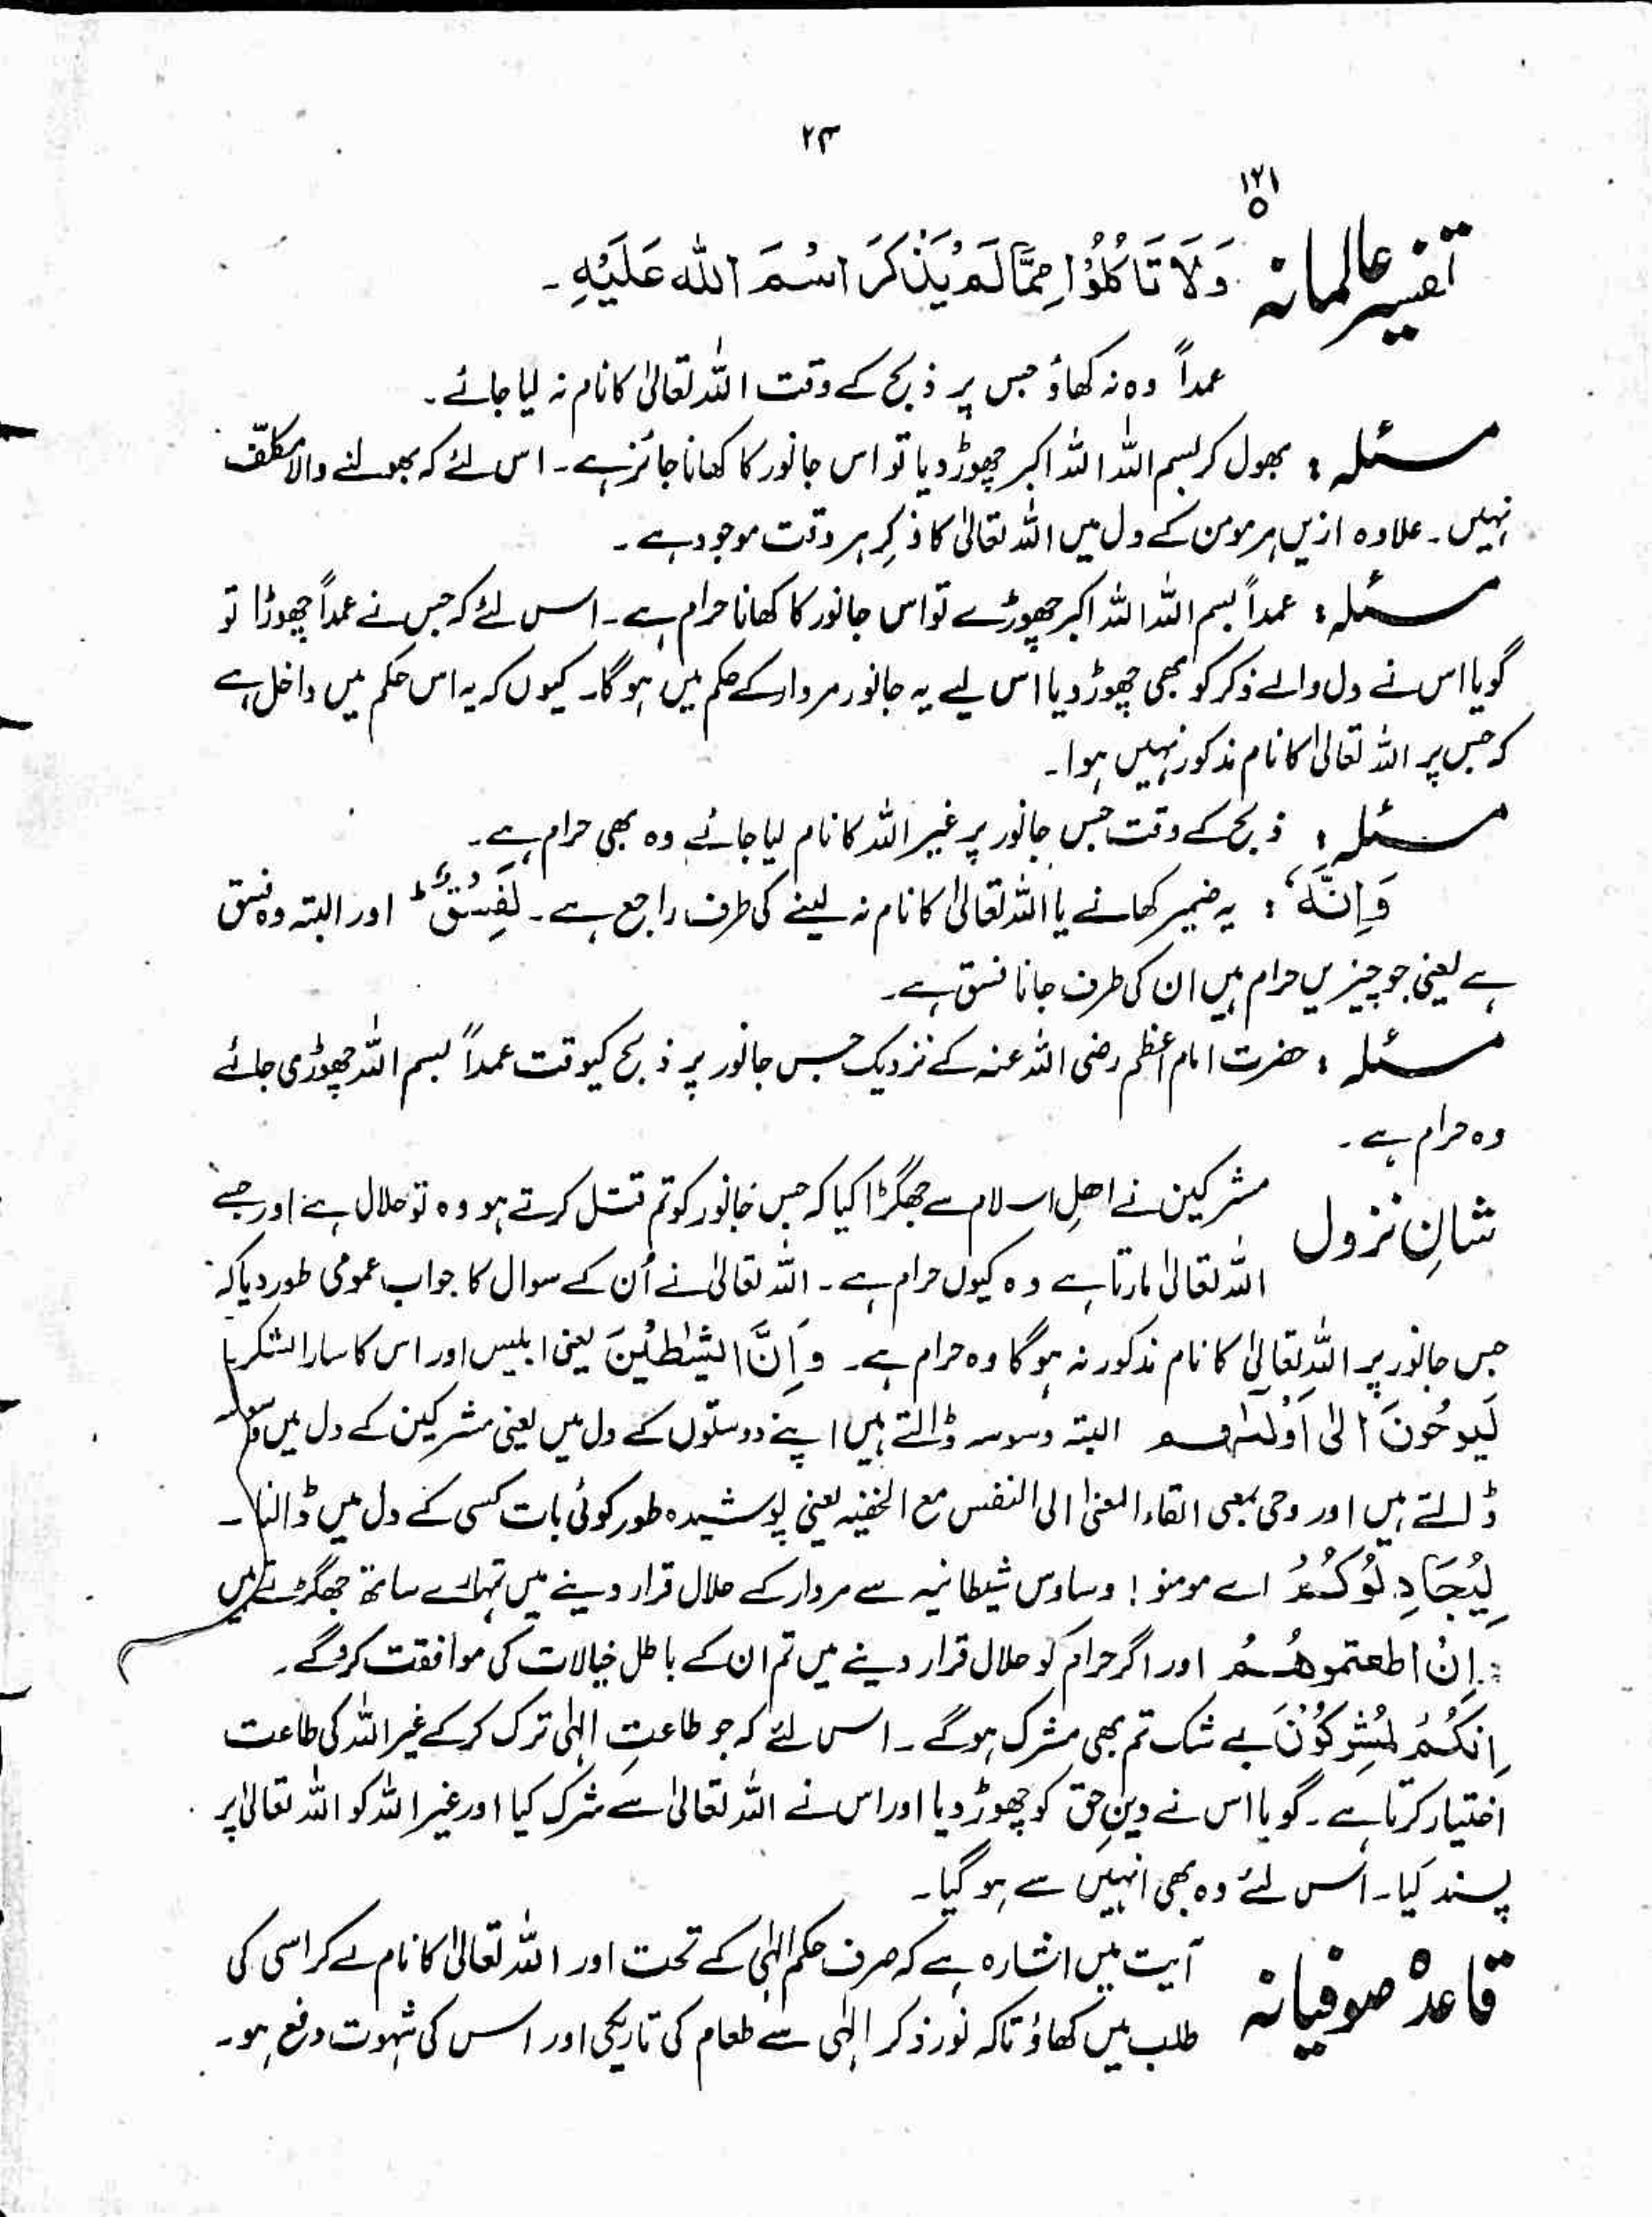 ۲۴
۱۲۱
تفسیر عالمانہ وَلَا تَاْكُلُوْا مِمَّا لَمْ يُذْكَرَ اسْمَ اللہ عَلَيْهِ۔
عمداً وہ نہ کھاؤ جس پر ذبح کے وقت اللہ تعالیٰ کا نام نہ لیا جائے۔
مسئلہ : بھول کر بسم اللہ اللہ اکبر چھوڑ دیا تو اس جانور کا کھانا جائز ہے۔ اس لئے کہ بھولنے والا مکلّف
نہیں۔ علاوہ ازیں ہر مومن کے دل میں اللہ تعالیٰ کا ذکر ہر وقت موجود ہے۔
مسئلہ : عمداً بسم اللہ اللہ اکبر چھوڑے تو اس جانور کا کھانا حرام ہے۔ اس لئے کہ جس نے عمداً چھوڑا تو
گویا اس نے دل والے ذکر کو بھی چھوڑ دیا اس لیے یہ جانور مردار کے حکم میں ہوگا۔ کیوں کہ یہ اس حکم میں داخل ہے
کہ جس پر اللہ تعالیٰ کا نام مذکور نہیں ہوا۔
مسئلہ : ذبح کے وقت جس جانور پر غیر اللہ کا نام لیا جائے وہ بھی حرام ہے۔
وَاِنَّهٗ : یہ ضمیر کھانے یا اللہ تعالیٰ کا نام نہ لینے کی طرف راجع ہے۔ لَفِسْقٌ ط اور البتہ وہ فسق
ہے یعنی جو چیزیں حرام ہیں ان کی طرف جانا فسق ہے۔
مسئلہ : حضرت امام اعظم رضی اللہ عنہ کے نزدیک جس جانور پر ذبح کیوقت عمداً بسم اللہ چھوڑی جائے
وہ حرام ہے۔
شانِ نزول مشرکین نے اھلِ اسلام سے جھگڑا کیا کہ جس جانور کو تم قتل کرتے ہو وہ تو حلال ہے اور جسے
اللہ تعالیٰ مارتا ہے وہ کیوں حرام ہے۔ اللہ تعالیٰ نے اُن کے سوال کا جواب عمومی طور دیا کہ
جس جانور پر اللہ تعالیٰ کا نام مذکور نہ ہوگا وہ حرام ہے۔ وَاِنَّ الشیٰطِیْنَ یعنی ابلیس اور اس کا سارا لشکر یا
لَیوحُونَ اِلیٰ اَوْلیٰئِهِم البتہ وسوسہ ڈالتے ہیں اپنے دوستوں کے دل میں یعنی مشرکین کے دل میں وسوسہ
ڈالتے ہیں اور وحی بمعی القاء المعنیٰ الی النفس مع الخفیہ یعنی پوشیدہ طور کوئی بات کسی کے دل میں ڈالنا۔
لِیُجَادِلُوکُمْ اے مومنو! وساوس شیطانیہ سے مردار کے حلال قرار دینے میں تمہارے ساتھ جھگڑتے ہیں
اِنْ اطعتموهُمْ اور اگر حرام کو حلال قرار دینے میں تم ان کے باطل خیالات کی موافقت کروگے۔
اِنکُمْ لَمُشْرِکُوْنَ بے شک تم بھی مشرک ہوگے۔ اس لئے کہ جو طاعتِ الہٰی ترک کرکے غیر اللہ کی طاعت
اختیار کرتا ہے۔ گویا اس نے دینِ حق کو چھوڑ دیا اور اس نے اللہ تعالیٰ سے شرک کیا اور غیر اللہ کو اللہ تعالیٰ پر
پسند کیا۔ اس لئے وہ بھی انہیں سے ہوگیا۔
قاعدۂ صوفیانہ آیت میں اشارہ ہے کہ صرف حکم الہٰی کے تحت اور اللہ تعالیٰ کا نام لے کر اسی کی
طلب میں کھاؤ تاکہ نور ذکر الہٰی سے طعام کی تاریکی اور اس کی شہوت دفع ہو۔